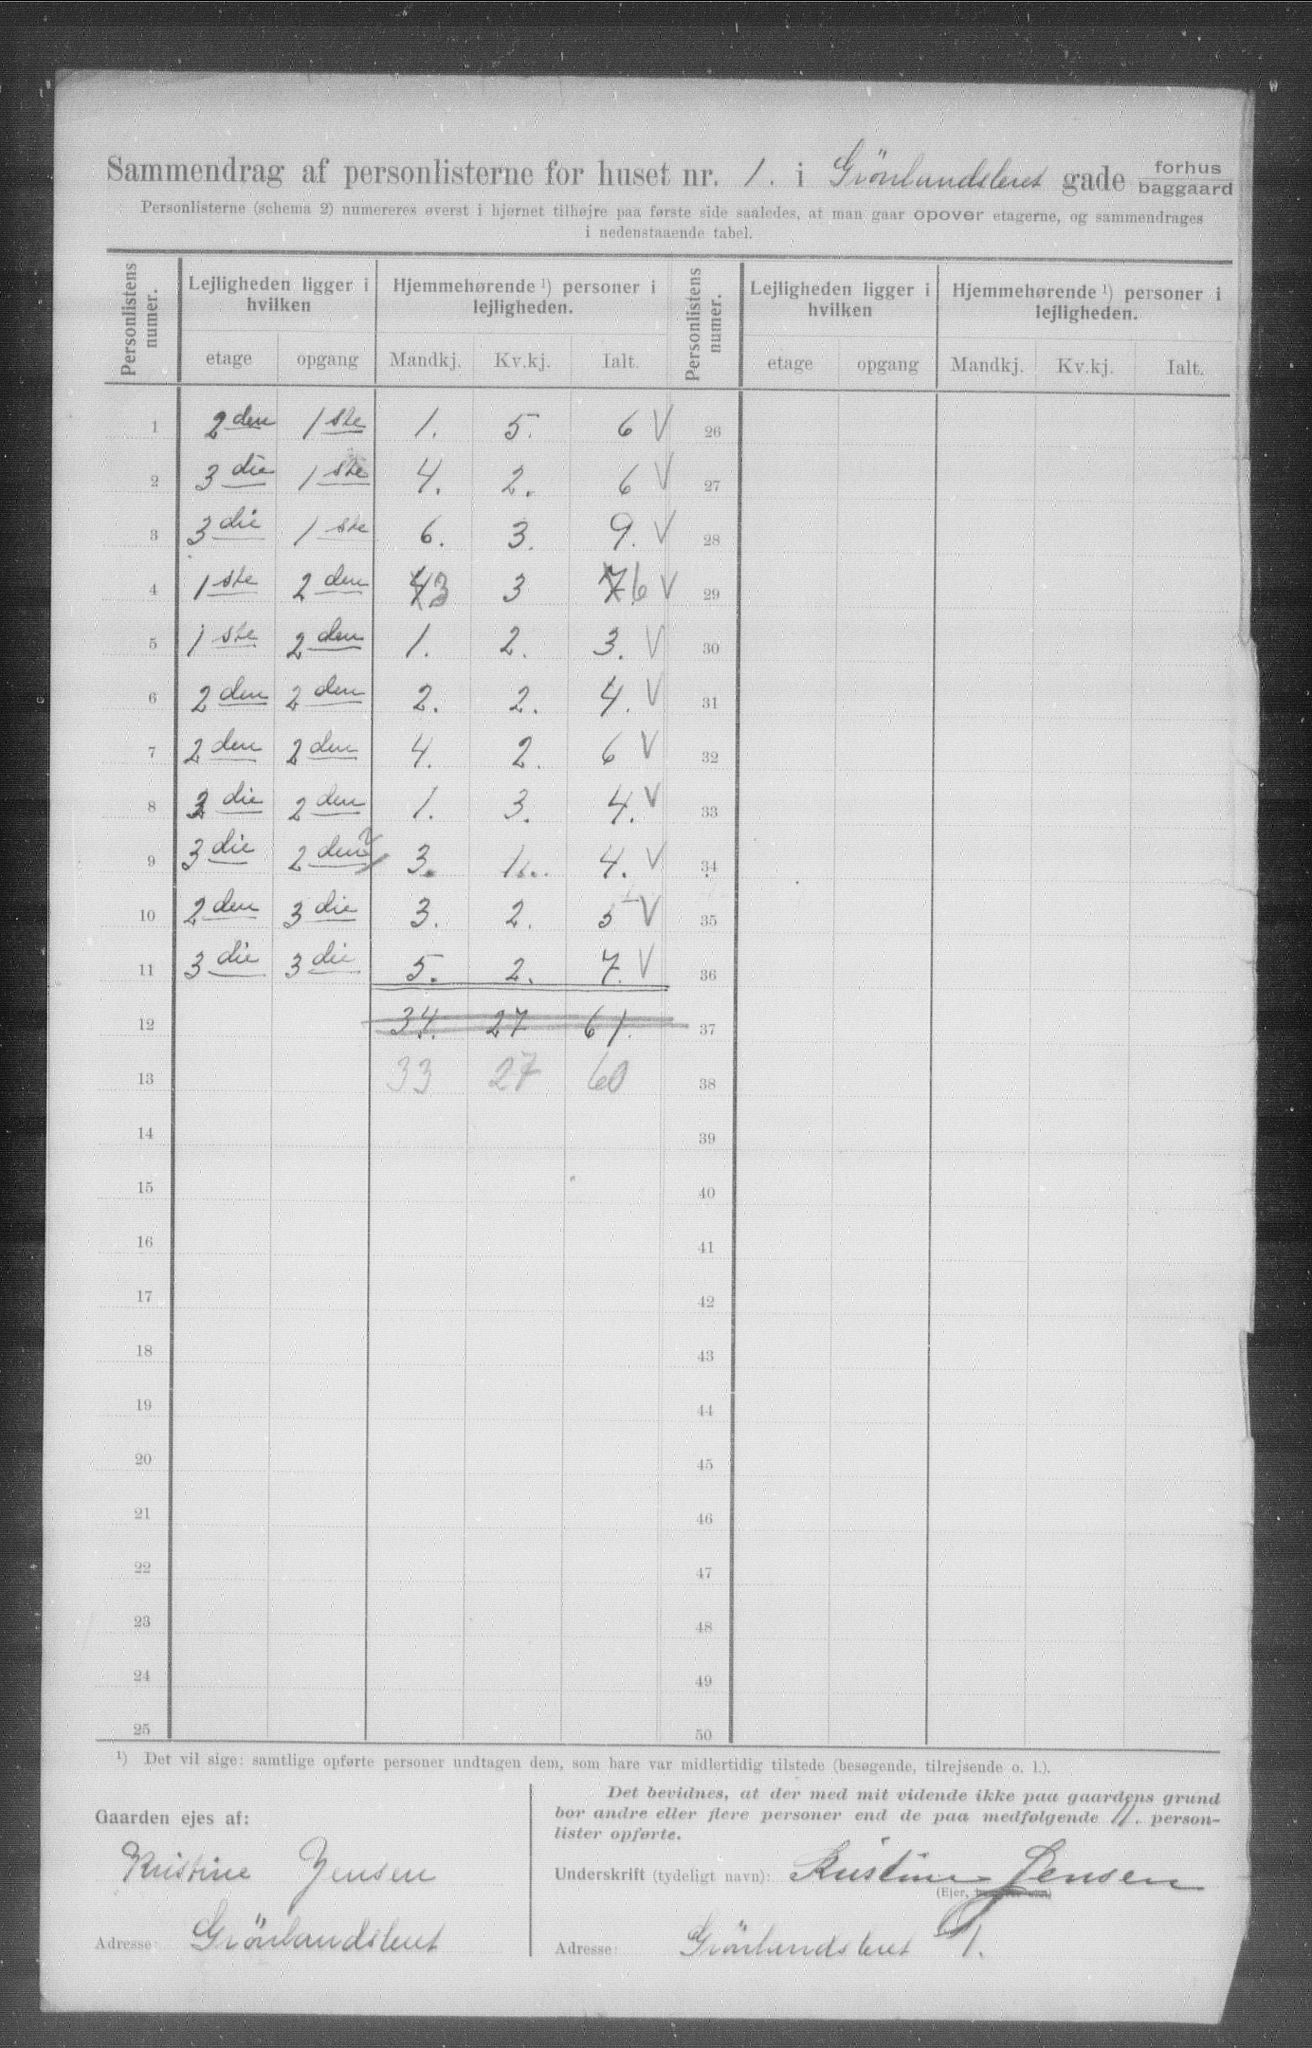 Sammendrag af personlisterne for huset nr. 1. i Grönlandsleret gade forhus baggaard
Personlisterne (schema 2) numereres øverst i hjørnet tilhøjre paa første side saaledes, at man gaar opover etagerne, og sammendrages
i nedenstaaende tabel.
Personlistens numer. Lejligheden ligger i hvilken Hjemmehørende ¹) personer i lejligheden. Personlistens numer. Lejligheden ligger i hvilken Hjemmehørende ¹) personer i lejligheden.
etage opgang Mandkj. Kv.kj. Ialt. etage opgang Mandkj. Kv.kj. Ialt.
1 2den 1ste 1. 5. 6 V 26
2 3die 1ste 4. 2. 6 V 27
3 3die 1ste 6. 3. 9. V 28
4 1ste 2den 43 3 76 V 29
5 1ste 2den 1. 2. 3. V 30
6 2den 2den 2. 2. 4. V 31
7 2den 2den 4. 2. 6 V 32
8 3die 2den 1. 3. 4. V 33
9 3die 2den 3. 1. 4. V 34
10 2den 3die 3. 2. 5 V 35
11 3die 3die 5. 2. 7. V 36
12 34. 27 61. 37
13 33 27 60 38
14 39
15 40
16 41
17 42
18 43
19 44
20 45
21 46
22 47
23 48
24 49
25 50
¹) Det vil sige: samtlige opførte personer undtagen dem, som bare var midlertidig tilstede (besøgende, tilrejsende o. l.).
Gaarden ejes af:
Kristine Jensen
Adresse: Grönlandsleret
Det bevidnes, at der med mit vidende ikke paa gaardens grund
bor andre eller flere personer end de paa medfølgende 11. person-
lister opførte.
Underskrift (tydeligt navn): Kristine Jensen
(Ejer,
Adresse: Grönlandsleret 1.